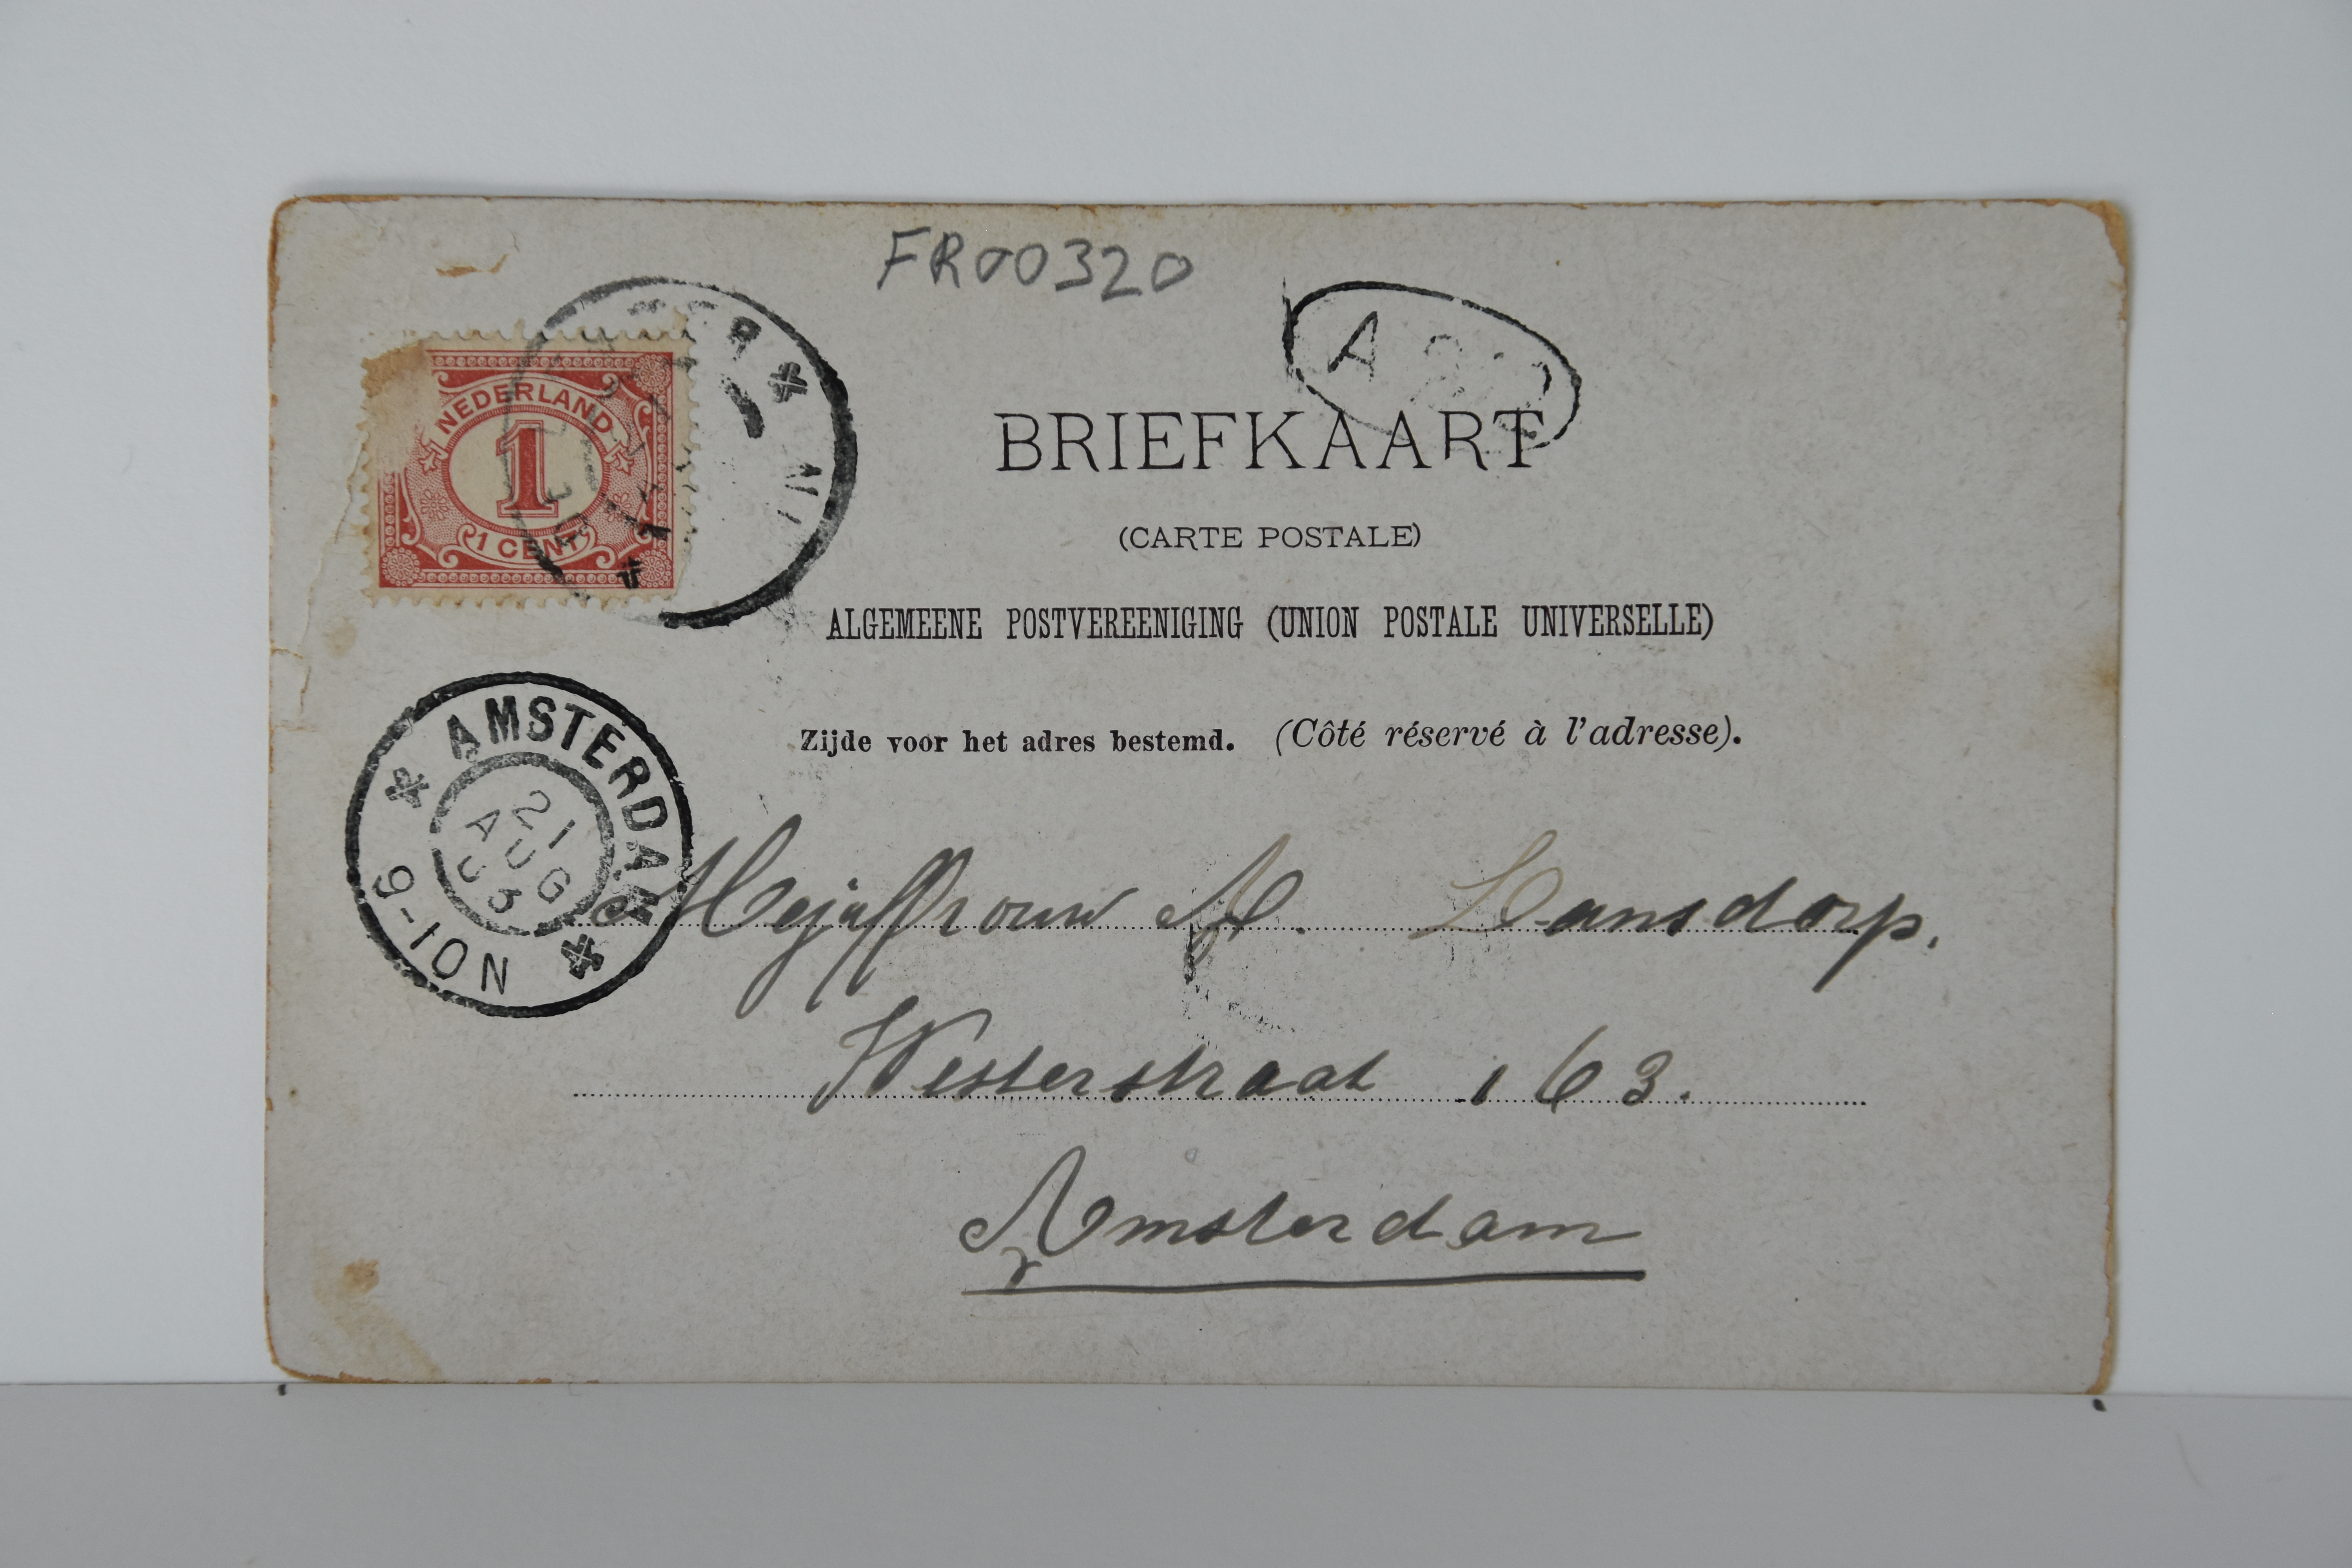 FR00320
NEDERLAND
1
1 CENT
A
BRIEFKAART
(CARTE POSTALE)
ALGEMEENE POSTVEREENIGING (UNION POSTALE UNIVERSELLE)
Zijde voor het adres bestemd. (Côté réservé à l'adresse).
AMSTERDAM
21
AUG
03
9-10N
Mejuffrouw A. Lansdorp.
Westerstraat 163.
Amsterdam